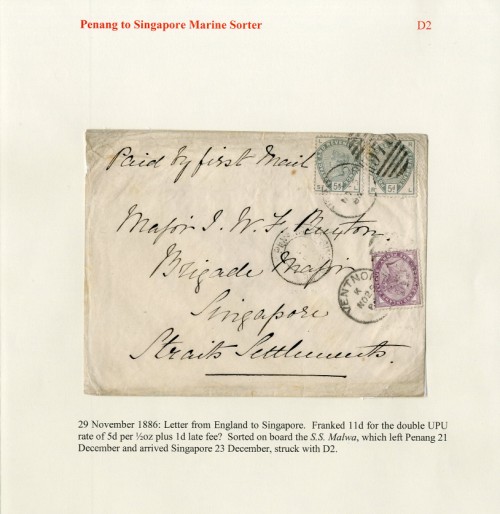 Penang to Singapore Marine Sorter D2
Paid by first Mail
Major J. W. F. Buxton.
Brigade Major
Singapore
Straits Settlements.
5d 5d
VENTNOR
K
NO 29
29 November 1886: Letter from England to Singapore. Franked 11d for the double UPU
rate of 5d per ½oz plus 1d late fee? Sorted on board the S.S. Malwa, which left Penang 21
December and arrived Singapore 23 December, struck with D2.